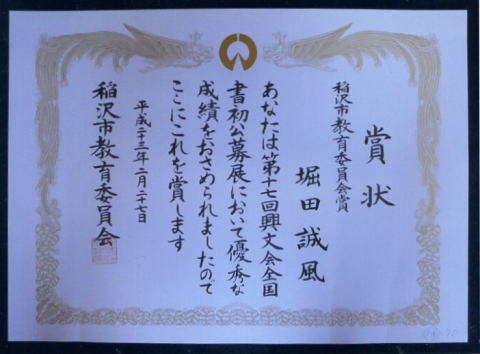 賞状
稲沢市教育委員会賞
堀田誠風
あなたは第十七回興文会全国
書初公募展において優秀な
成績をおさめられましたので
ここにこれを賞します
平成二十三年二月二十七日
稲沢市教育委員会